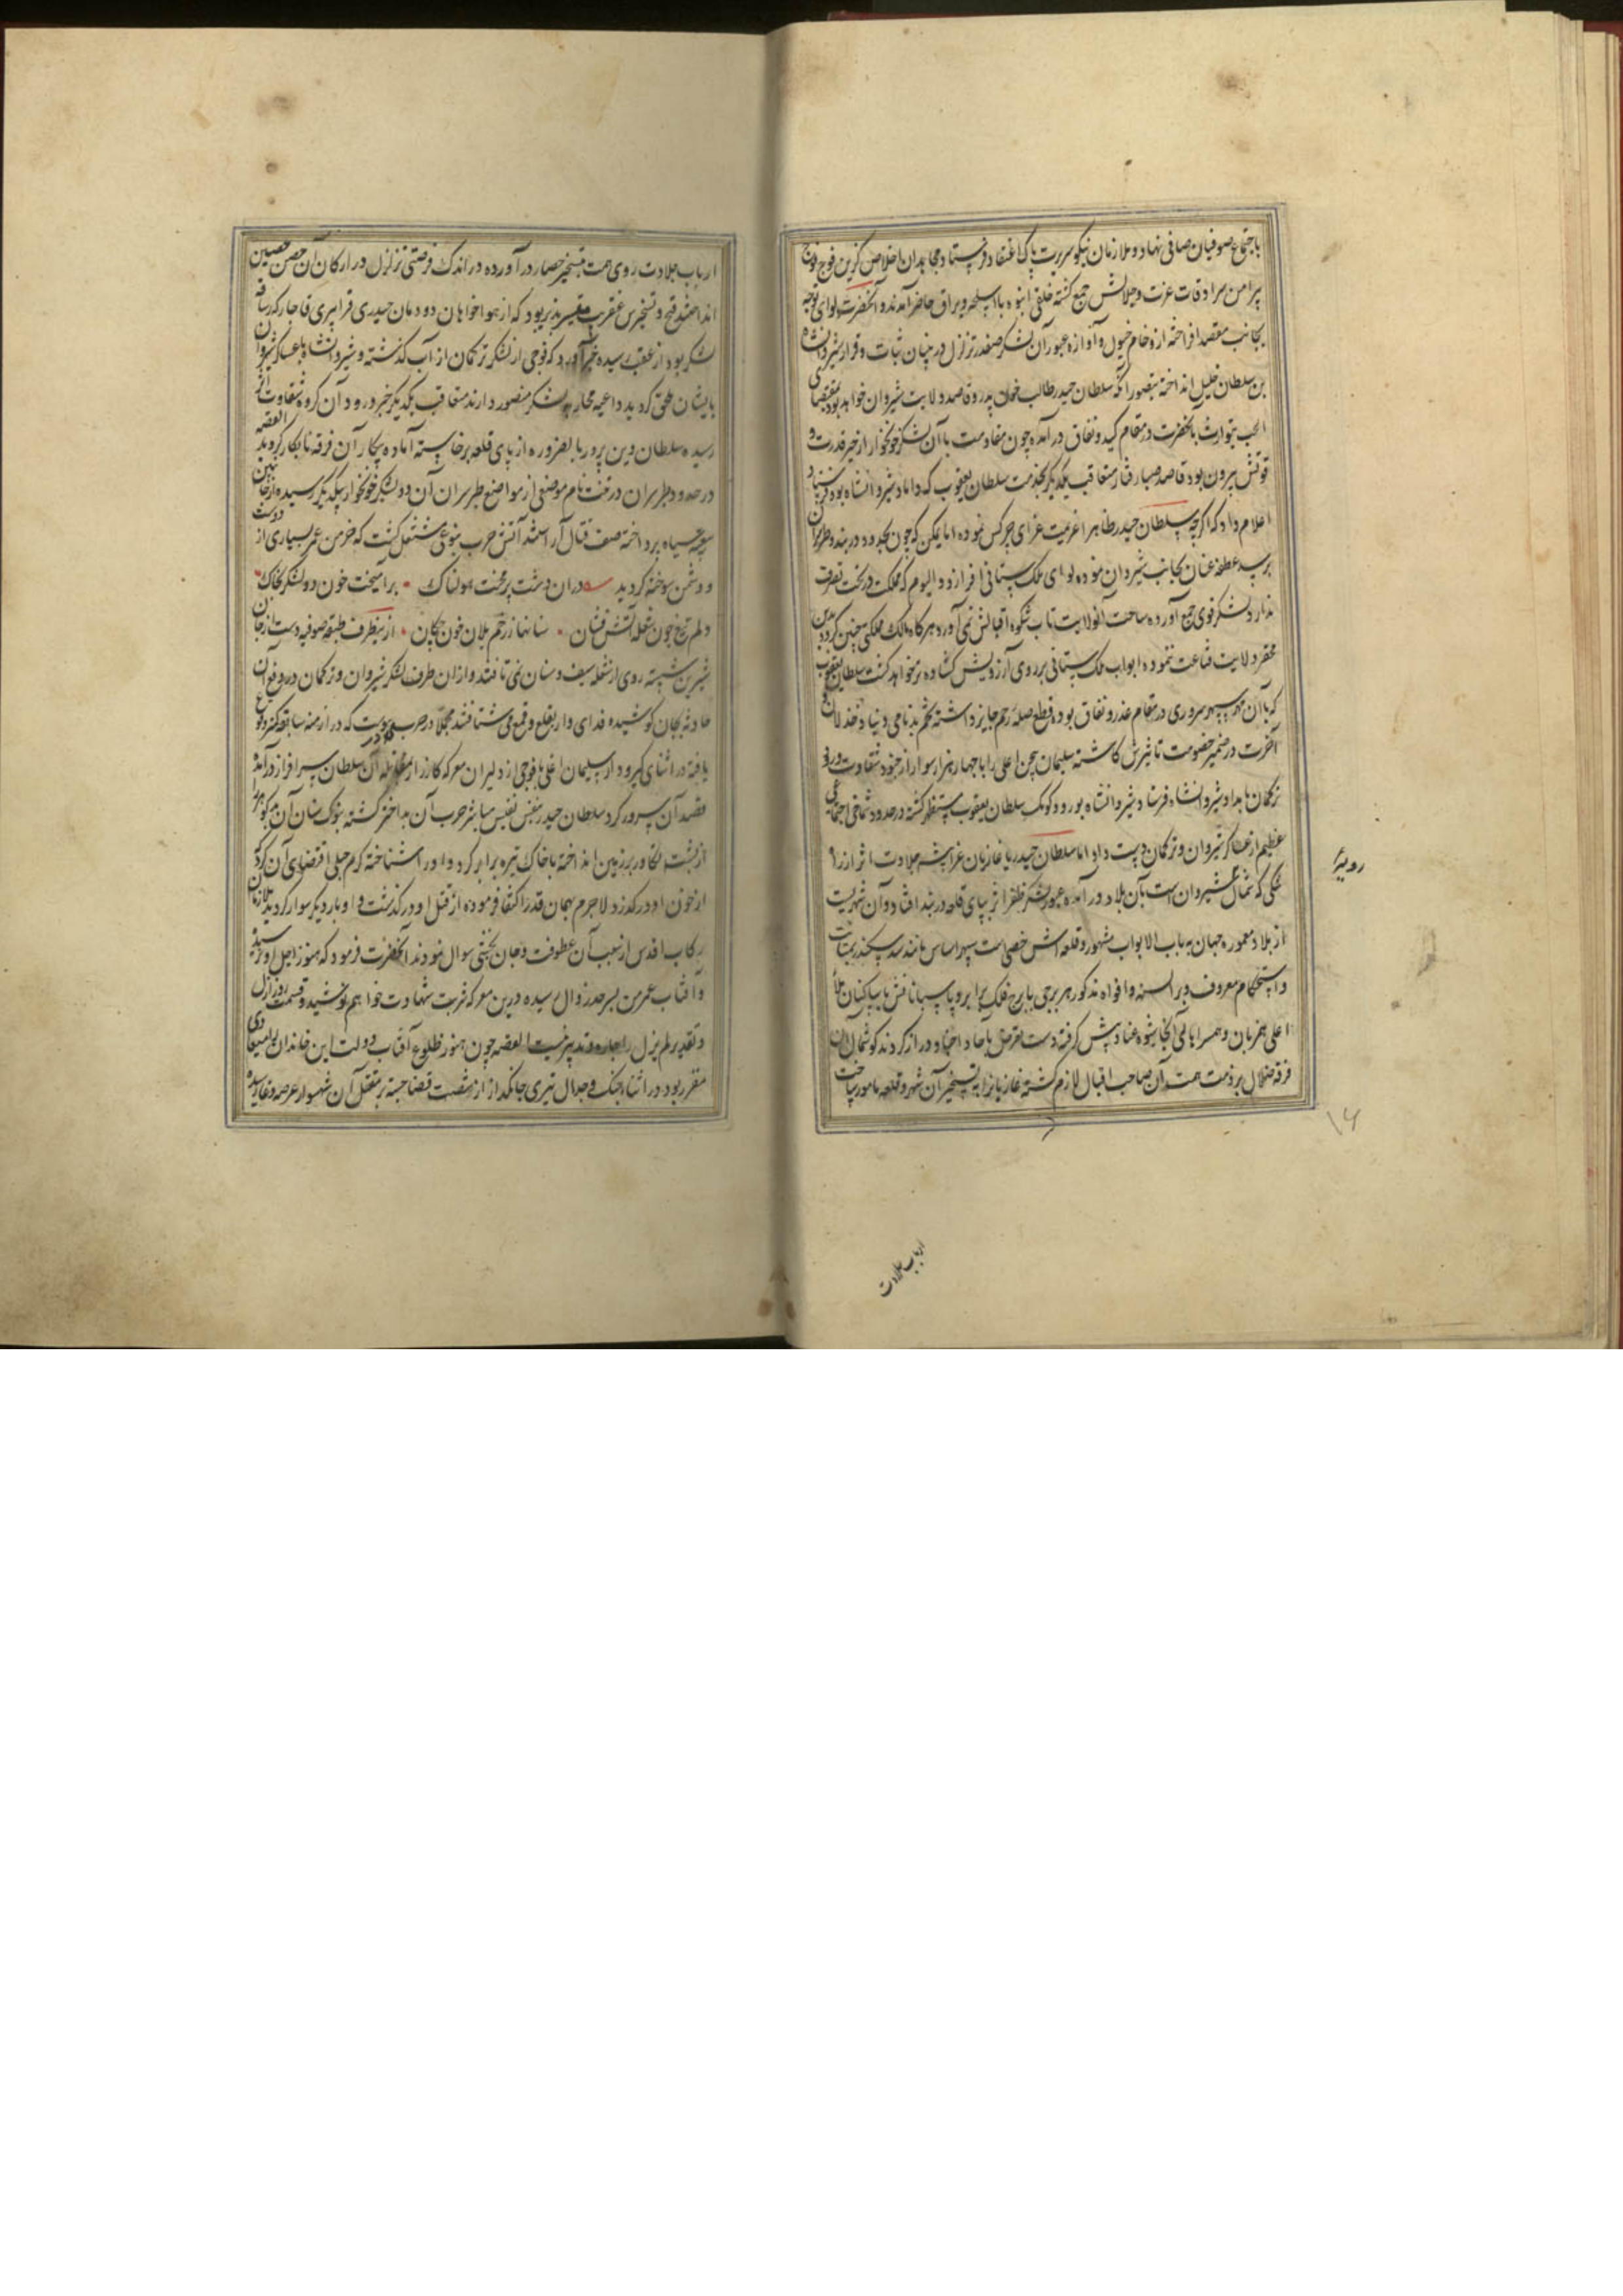 باجتماع صوفیان صافی نهاد و ملازمان نیکو سیرت پاک اعتقاد فرستاد و مجاهدان اخلاص گزین فوج فوج
پیرامن سرادقات عزت و جلالش جمع گشته خلقی انبوه با اسلحه و یراق حاضر آمدند و آنحضرت لوای توجه
بجانب مقصد افراخته از وخامت خیول و آوازه عبور آن لشکر صفدر تزلزل در بنیان ثبات و قرار شیروانشاه
بن سلطان خلیل انداخته بتصور آنکه سلطان حیدر طالب خون پدر و قاصد ولایت شیروان خواهد بود بمقتضای
الحب یتوارث با آنحضرت در مقام کید و نفاق در آمده چون مقاومت با آن لشکر خونخوار از حیز قدرت و
قوتش بیرون بود قاصد صبا رفتار متعاقب یکدیگر بخدمت سلطان یعقوب که داماد شیروانشاه بود فرستاد
اعلام داد که اگرچه سلطان حیدر ظاهرا عزیمت غزای چرکس نموده اما یمکن که چون بحدود دربند و طبرسران
برسد عطفه عنان بجانب شیروان نموده لوای ملک ستانی افرازد و الیوم که مملکت در تحت تصرف
ندارد لشکر قوی جمع آورده ساحت آنولایت تاب شکوه اقبالش نمی آورد هرگاه مالک مملکتی چنین گردد بدین
محقر ولایت قناعت ننموده ابواب ملک ستانی بر روی آرزویش گشاده تر خواهد گشت سلطان یعقوب
که با آن مهر سپهر سروری در مقام غدر و نفاق بود قطع صله رحم جایز داشته تخم بدنامی دنیا و خذلان
آخرت در ضمیر خصومت تاثیرش کاشته سلیمان بیجن اغلی را با چهار هزار سوار از جنود شقاوت ورود
ترکمان بامداد شیروانشاه فرستاد شیروانشاه بورود کومک سلطان یعقوب مستظهر گشته در حدود شماخی اجتماعی
عظیم از عساکر شیروان و ترکمان دست داد اما سلطان حیدر با غازیان غزا پیشه جلادت اثر از راه
شکی که شمال شیروان است بآن بلاد در آمده عبور لشکر ظفر اثر بپای قلعه دربند افتاد و آن شهریست
از بلاد معموره جهان به باب الابواب مشهور و قلعه اش حصنی است سپهر اساس مانند سد سکندر بمتانت
و استحکام معروف و بر السنه و افواه مذکور هر برجی با برج فلک برابر و پاسبانانش با ساکنان ملأ
اعلی همزبان و همسر اهالی آنجا شیوه عناد پیش گرفته دست تعرض باحاد اجناد دراز کردند گوشمال آن
فرقه ضلال بر ذمت همت آن صاحب اقبال لازم گشته غازیانرا به تسخیر آن شهر و قلعه مامور ساخت
رویهٔ
۱۶
ارباب جلادت
ارباب جلادت روی همت بتسخیر حصار در آورده در اندک فرصتی تزلزل در ارکان آن حصن حصین
انداختند فتح و تسخیرش عنقریب متیسر پذیر بود که از هواخواهان دودمان حیدری قرا پیری قاجار که رساقه
لشکر بود از عقب رسیده خبر آورد که فوجی از لشکر ترکمان از آب گذشته و شیروانشاه با عساکر شیروان
بایشان ملحق گردید داعیه محاربه لشکر منصور دارند متعاقب یکدیگر خبر ورود آن گروه شقاوت اثر
رسیده سلطان دین پرور بالضروره از پای قلعه برخاسته آماده پیکار آن فرقه نابکار گردید القصه
در حدود طبرسران درتخت نام موضعی از مواضع طبرسران آن دو لشکر خونخوار بیکدیگر رسیده از جانبین
بتوجه سپاه پرداخته صف قتال آراستند آتش حرب بنوعی مشتعل گشت که خرمن عمر بسیاری از دوست
و دشمن سوخته گردید دران دشت پر محنت هولناک برآمیخت خون دو لشکر بخاک
دلم تیغ چون شعله آتش فشان سنانها ز زخم یلان خون چکان از ینطرف طبقه صوفیه دست از جان
شیرین شسته روی از شعله سیف و سنان نمی تافتند و ازان طرف لشکر شیروان و ترکمان در دفع آن
حادثه بجان کوشیده فدای وار بقلع و قمع می شتافتند مجملا در حرب پیوست که در ازمنه سابقه کمتر وقوع
یافته در اثنای گیر و دار سلیمان اغلی با فوجی از دلیران معرکه کارزار در مقابله آن سلطان سرافراز در آمده
قصد آن سرور کرد سلطان حیدر بنفس نفیس مباشر حرب آن بد اختر گشته بنوک سنان آن مدبر گوهر را
از پشت تکاور بر زمین انداخته با خاک تیره برابر کرد و او را شناخته کرم جبلی اقتضای آن کرد
از خون او درگذرد لاجرم بهمان قدر اکتفا فرموده از قتل او درگذشت و او بار دیگر سوار گردید ملازمان
رکاب اقدس از سبب آن عطوفت و جان بخشی سوال نمودند آنحضرت فرمود که هنوز اجل او نرسیده
و آفتاب عمر من بسر حد زوال رسیده درین معرکه شربت شهادت خواهم نوشید و قسمت روز ازل
و تقدیر لم یزل را چاره و تدبیر نیست القصه چون هنوز طلوع آفتاب دولت این خاندان را میعادی
مقرر بود در اثناء جنگ و جدال تیری جانگداز از شصت قضا جسته بر مقتل آن شهسوار عرصه وغا رسیده